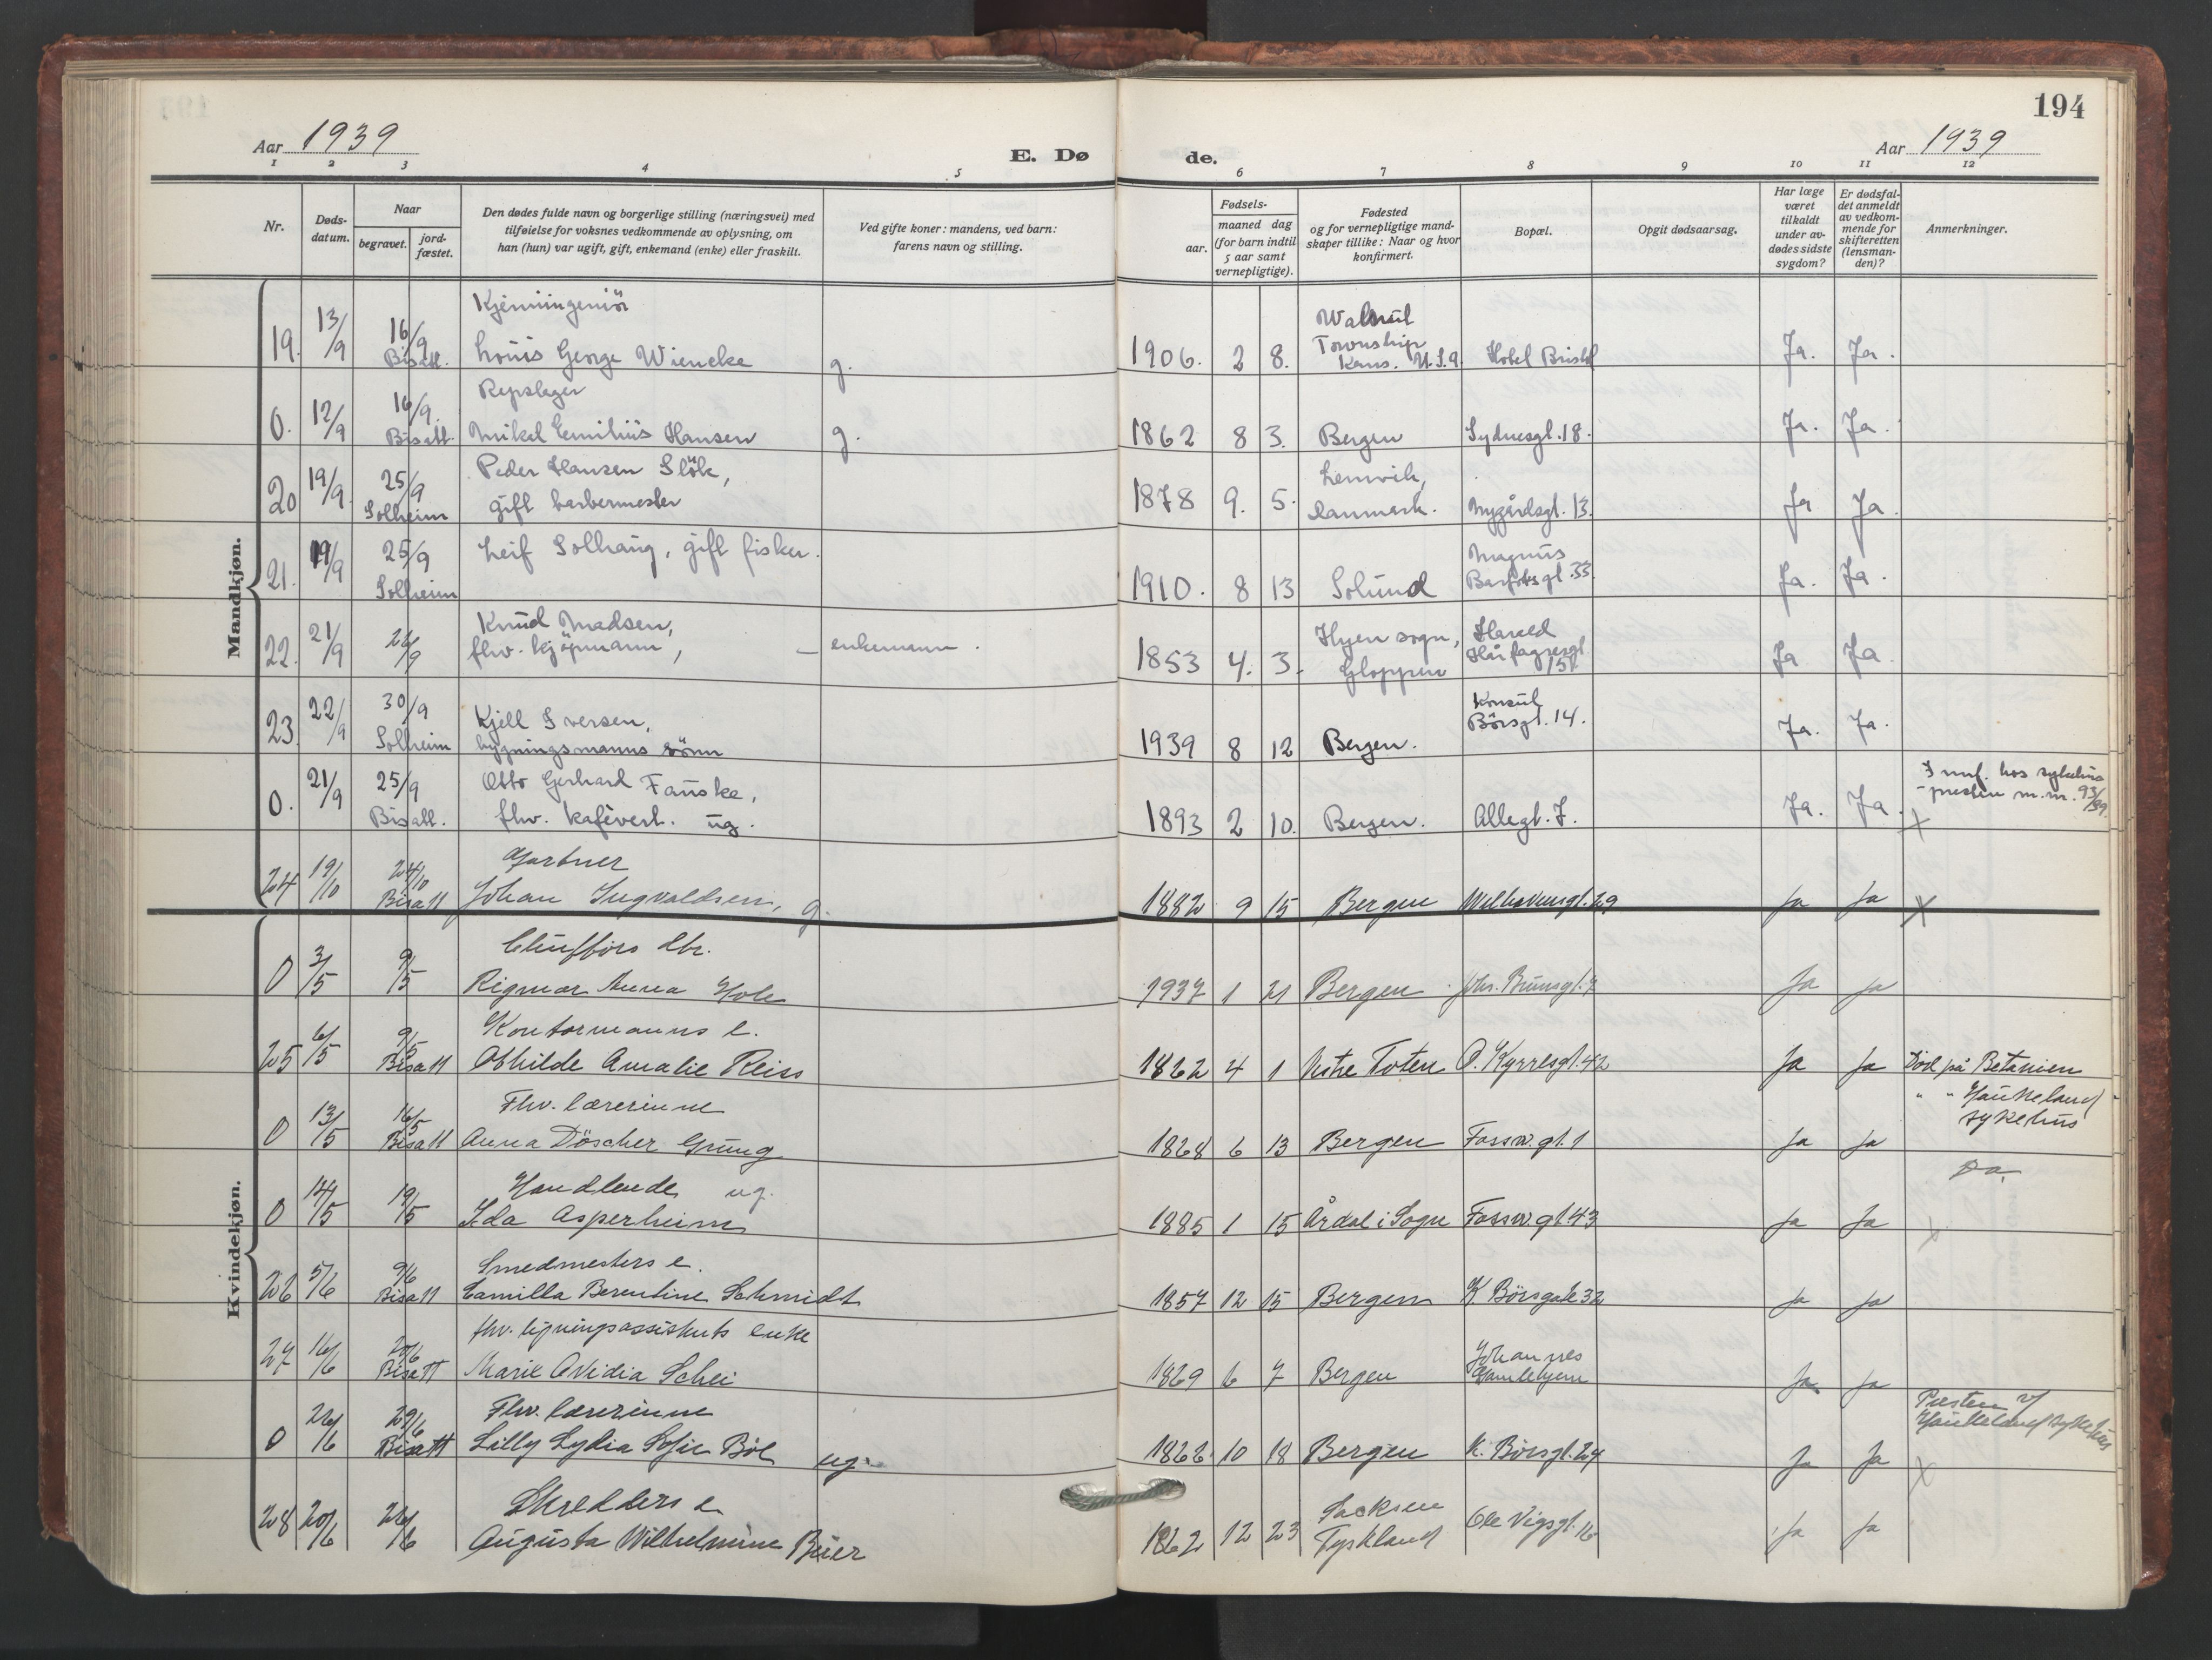 194
Aar 1939
E. Dø de.
Aar 1939
1 2 3 4 5 6 7 8 9 10 11 12
Nr.
Døds-datum.
Naar
begravet.
jord-fæstet.
Den dødes fulde navn og borgerlige stilling (næringsvei) med
tilføielse for voksnes vedkommende av oplysning, om
han (hun) var ugift, gift, enkemand (enke) eller fraskilt.
Ved gifte koner: mandens, ved barn:
farens navn og stilling.
Fødsels-
aar.
maaned dag
(for barn indtil
5 aar samt
vernepligtige).
Fødested
og for vernepligtige mand-
skaper tillike: Naar og hvor
konfirmert.
Bopæl.
Opgit dødsaarsag.
Har læge
været
tilkaldt
under av-
dødes sidste
sygdom?
Er dødsfal-
det anmeldt
av vedkom-
mende for
skifteretten
(lensman-
den)?
Anmerkninger.
Mandkjøn.
Kjemiingeniör Walnut
19. 13/9 16/9 Bisatt. Louis George Wiencke g. 1906. 2 8. Township Kans. U.S.A. Hotel Bristol Ja. Ja.
Repslager
0. 12/9 16/9. Bisatt. Mikal Emilius Hansen g. 1862 8 3. Bergen Sydnesgt. 18. Ja. Ja.
Peder Hansen Slök, Lemvik,
20 19/9. 25/9 Solheim gift barbermester 1878 9. 5. Danmark. Nygårdsgt. 13. Ja Ja.
21. 19/9 25/9 Solheim Leif Solhaug, gift fisker. 1910. 8 13 Solund Magnus Barfotsgt. 33. Ja. Ja.
Knud Madsen, Hyen sogn, Harald
22. 21/9 26/9 fhv. kjöpmann, – enkemann. 1853 4. 3. Gloppen Hårfagresgt 15. Ja Ja.
Kjell Iversen, Konsul
23 22/9 30/9 Solheim bygningsmanns sönn 1939 8 12 Bergen. Börsgt. 14. Ja. Ja.
Otto Gerhard Fauske,
0. 21/9 25/9 Bisatt. fhv. kafévert. ug. 1893 2 10. Bergen. Allegt. 7. Ja. Ja. × hos sykehus-presten m.m. 93/39
Gartner
24 19/10 24/10 Bisatt Johan Ingvaldsen, g. 1882 9 15 Bergen Welhavensgt. 29 Ja Ja ×
Kvindekjøn.
Chufförs dtr.
0 3/5 9/5 Rigmor Anna Hole 1937 1 21 Bergen Joh. Brunsgt. 7 Ja Ja
Kontormanns e.
25 6/5 9/5 Bisatt Othilde Amalie Reiss 1862 4 1 Vestre Toten O. Kyrresgt. 42 Ja Ja Död på Betanien
Fhv. lærerinne
0 13/5 16/5 Bisatt Anna Döscher Grung 1868 6 13 Bergen Fossw. gt. 1 Ja Ja " " Haukeland sykehus
Handlende ug.
0 14/5 19/5 Ida Asperheim 1885 1 15 Årdal i Sogn Fossw. gt 43 Ja Ja Do. ×
Smedmesters e.
26 5/6 9/6 Bisatt Camilla Berentine Schmidt 1857 12 15 Bergen K. Börsgate 32 Ja Ja
fhv. ligningsassistents enke
27 16/6 20/6 Bisatt Marie Ovidia Schei 1869 6 7 Bergen Johannes Gamlehjem Ja Ja
Fhv. lærerinne
0 26/6 29/6 Bisatt Lilly Lydia Sofie Böe ug. 1862 10 18 Bergen K. Börsgt. 24 Ja Ja Presten v/ Haukeland sykehus ×
Skredders e
28 20/6 26/6 Augusta Wilhelmine Beier 1862 12 23 Sacksen Tyskland Ole Vigsgt. 16 Ja Ja